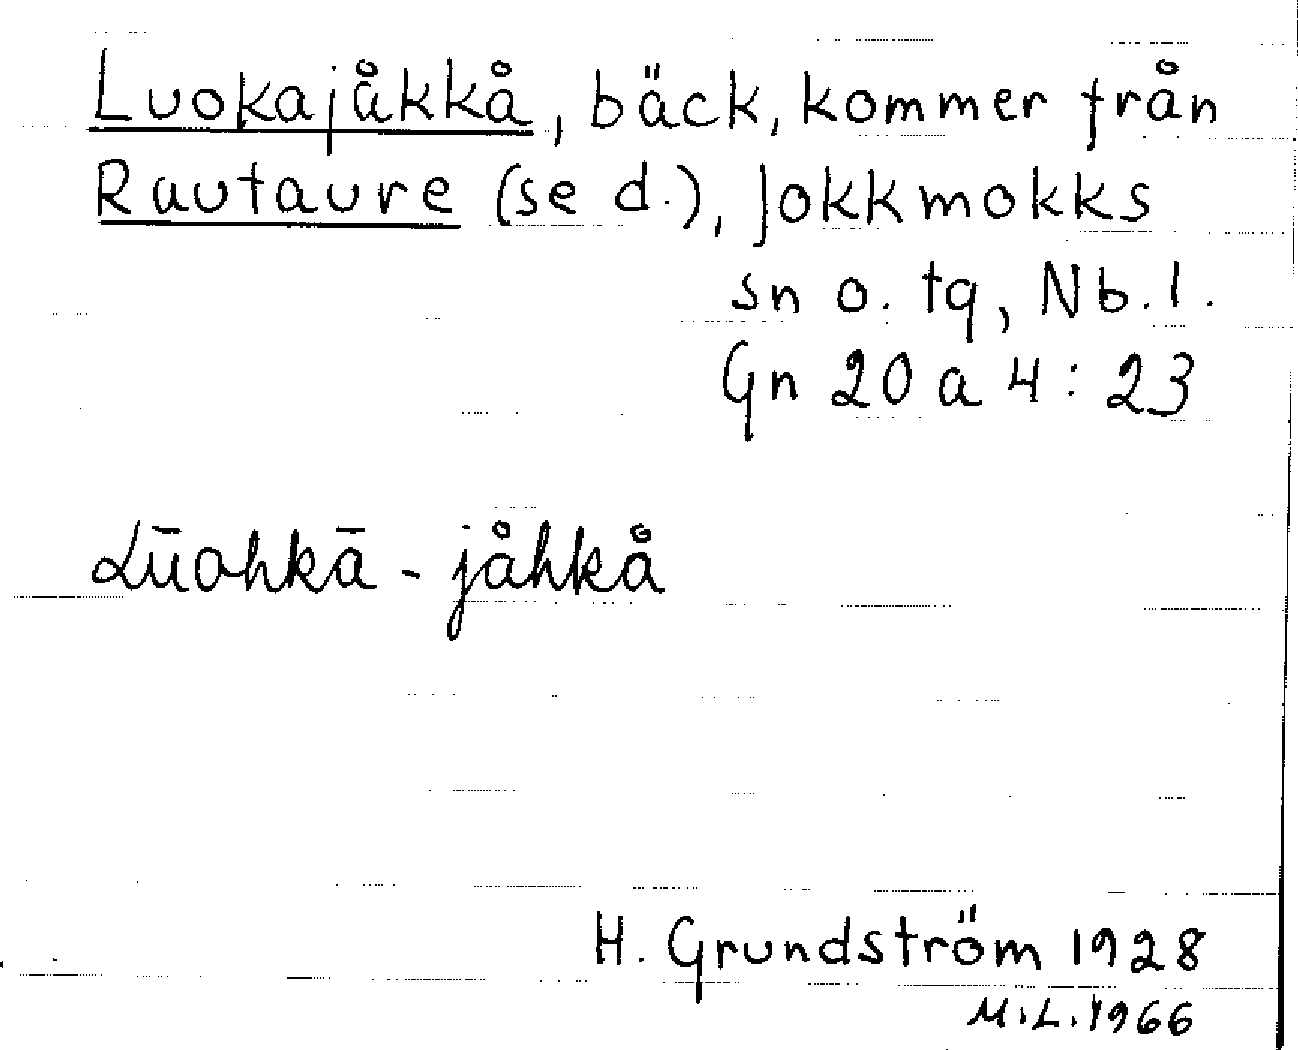 Luokajåkkå, bäck, kommer från
Rautaure (se d.), Jokkmokks
sn o. tg, Nb. l.
Gn 20 a 4:23
Lūohkā-jåhkå
H. Grundström 1928
M.L. 1966